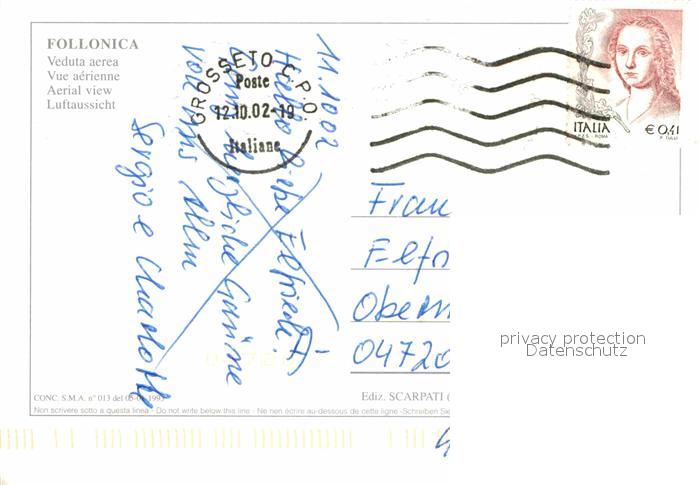 FOLLONICA
Veduta aerea
Vue aérienne
Aerial view
Luftaussicht
GROSSETO C.P.O.
Poste
12.10.02-19
Italiane
ITALIA
I.P.Z.S. - ROMA
€ 0,41
P. TULLI
11.10.02
Liebe Elfriede
herzliche Grüsse
von uns allen
Sergio e Charlotte
Frau
Elfr
Obern
04720
privacy protection
Datenschutz
CONC. S.M.A. n° 013 del
Ediz. SCARPATI (
Non scrivere sotto a questa linea - Do not write below this line - Ne rien écrire au-dessous de cette ligne -Schreiben Sie